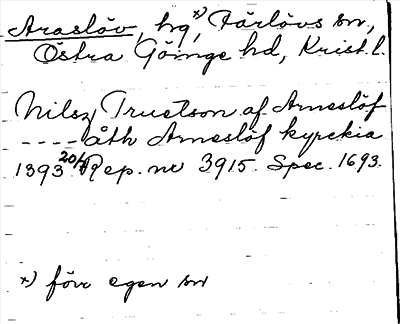 Araslöv, hg x), Färlövs sn,
Östra Göinge hd, Krist. l.
Nilsz Truetson af Arneslöf
---- åth Arneslöf kyrckia
1393 20/4 Rep. nr 3915. Spec. 1693.
x) förr egen sn